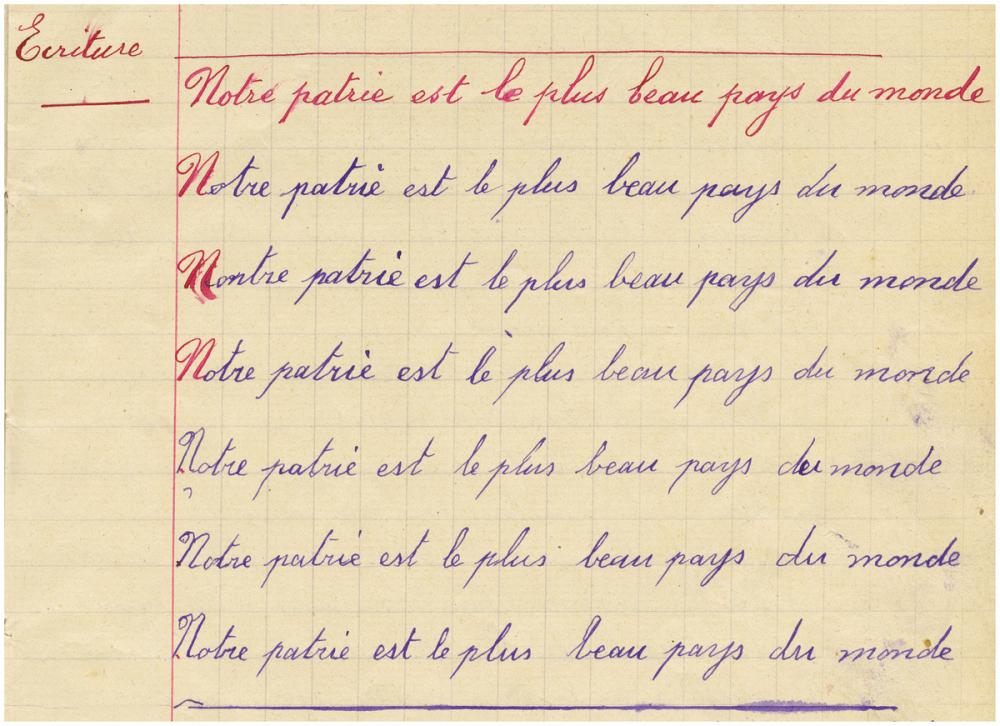 Ecriture
Notre patrie est le plus beau pays du monde
Notre patrie est le plus beau pays du monde
Nontre patrie est le plus beau pays du monde
Notre patrie est le plus beau pays du monde
Notre patrie est le plus beau pays du monde
Notre patrie est le plus beau pays du monde
Notre patrie est le plus beau pays du monde